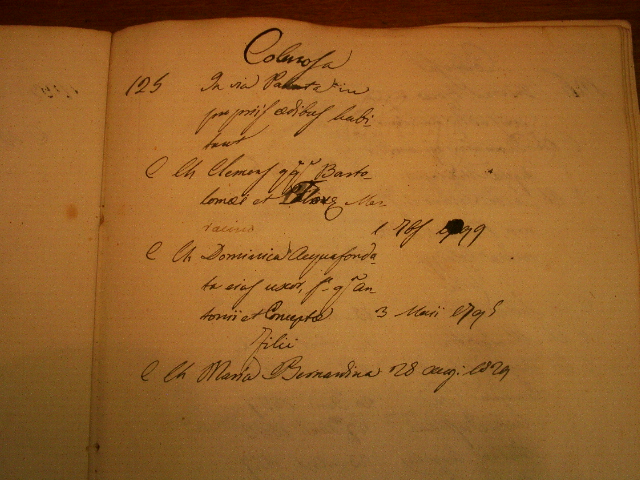 Colurosa
125 In via Palmata in
propriis ædibus habi-
tant
C Ch Clemens qm Barto-
lomæi et
1 7bs 1799
C Ch Dominica Acquafonda-
ta eius uxor, f. qm An-
tonii et Conceptæ 3 Maii 1795
Filii
C Ch Maria Bernardina 28 aug. 1829